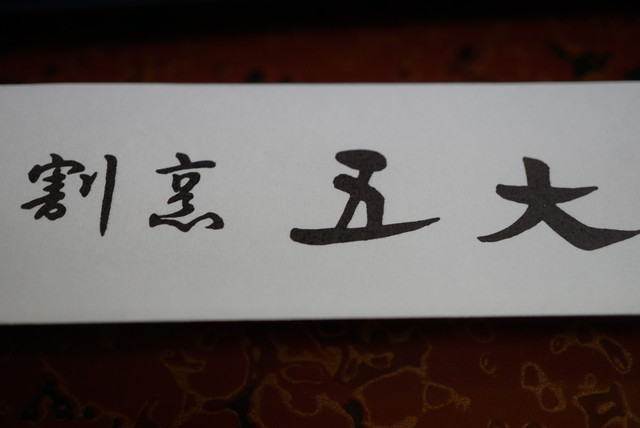 割烹 五大